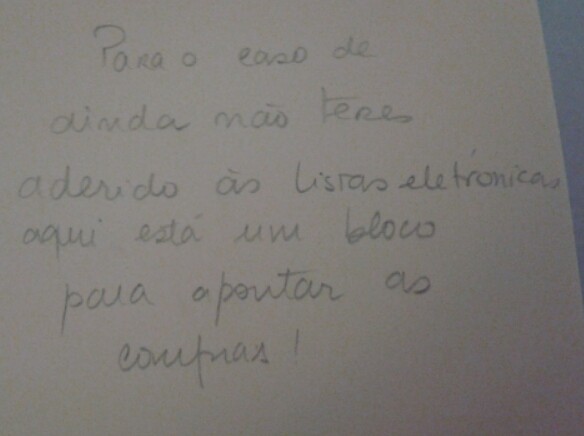 Para o caso de
ainda não teres
aderido às listas eletrónicas
aqui está um bloco
para apontar as
compras!